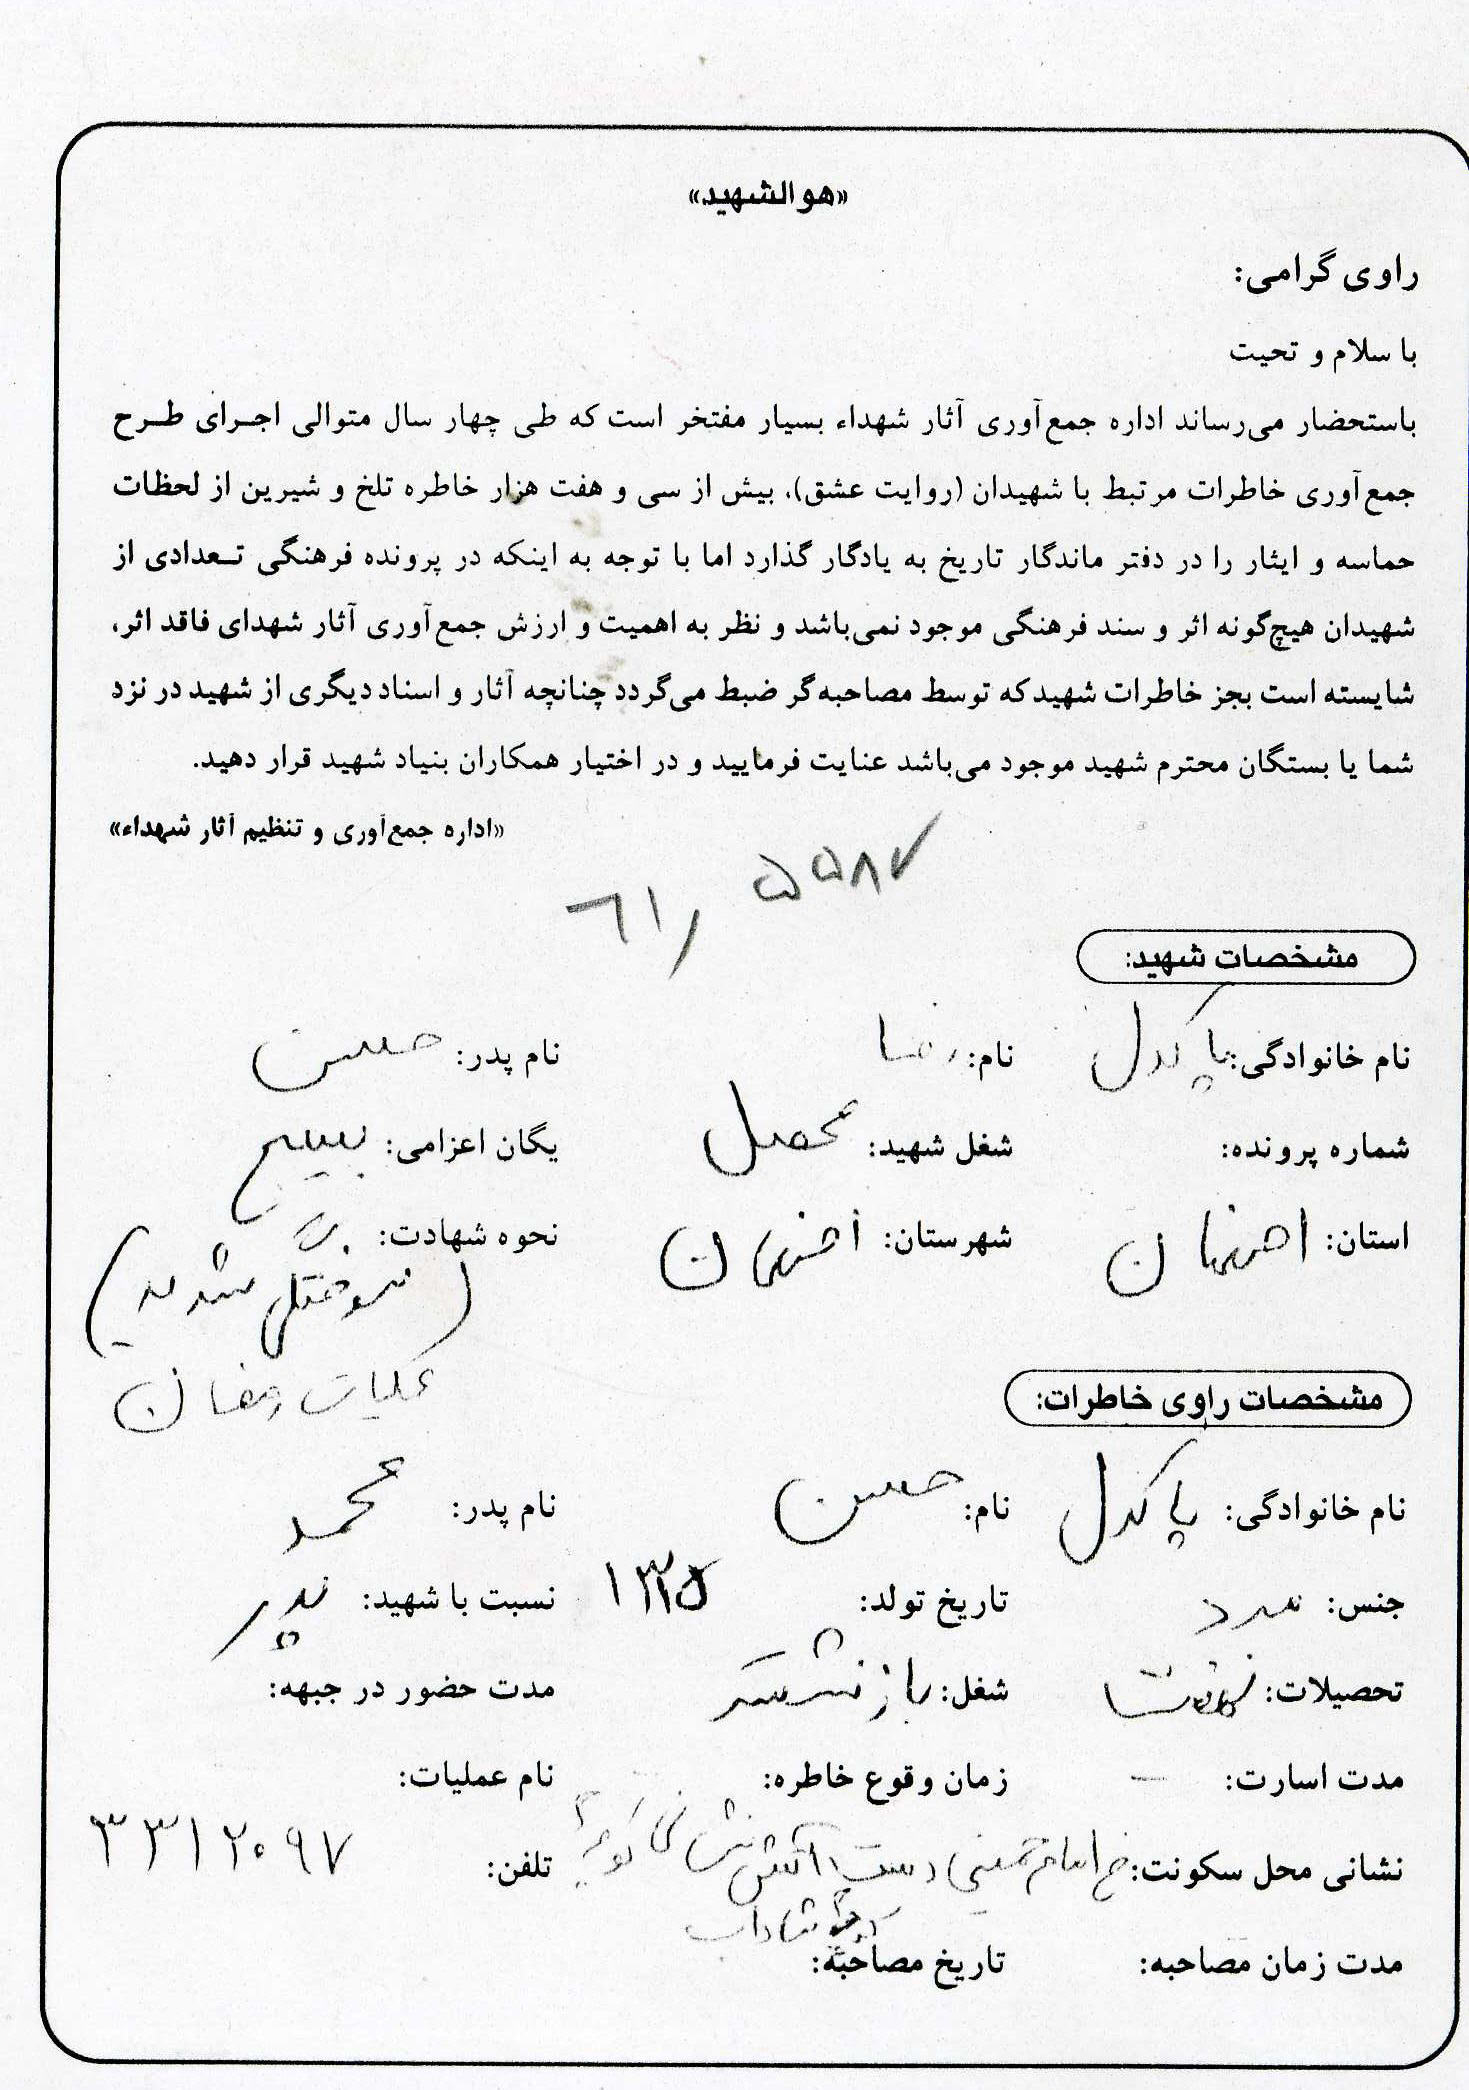 «هوالشهید»
راوی گرامی:
با سلام و تحیت
باستحضار می‌رساند اداره جمع‌آوری آثار شهداء بسیار مفتخر است که طی چهار سال متوالی اجرای طرح
جمع‌آوری خاطرات مرتبط با شهیدان (روایت عشق)، بیش از سی و هفت هزار خاطره تلخ و شیرین از لحظات
حماسه و ایثار را در دفتر ماندگار تاریخ به یادگار گذارد اما با توجه به اینکه در پرونده فرهنگی تعدادی از
شهیدان هیچ‌گونه اثر و سند فرهنگی موجود نمی‌باشد و نظر به اهمیت و ارزش جمع‌آوری آثار شهدای فاقد اثر،
شایسته است بجز خاطرات شهید که توسط مصاحبه‌گر ضبط می‌گردد چنانچه آثار و اسناد دیگری از شهید در نزد
شما یا بستگان محترم شهید موجود می‌باشد عنایت فرمایید و در اختیار همکاران بنیاد شهید قرار دهید.
«اداره جمع‌آوری و تنظیم آثار شهداء»
۶۱/ ۵۵۸۷
مشخصات شهید:
نام خانوادگی: پاکدل نام: رضا نام پدر: حسین
شماره پرونده: شغل شهید: محصل یگان اعزامی: بسیج
استان: اصفهان شهرستان: اصفهان نحوه شهادت:
(سوختگی شدید)
عملیات رمضان
مشخصات راوی خاطرات:
نام خانوادگی: پاکدل نام: حسین نام پدر: محمد
جنس: مرد تاریخ تولد: نسبت با شهید: پدر
تحصیلات: نهضت شغل: بازنشسته مدت حضور در جبهه:
مدت اسارت: – زمان وقوع خاطره: نام عملیات:
نشانی محل سکونت: خ امام خمینی آتش نشانی کوچه تلفن: ۳۳۱۲۰۹۷
شاداب
مدت زمان مصاحبه: تاریخ مصاحبه: